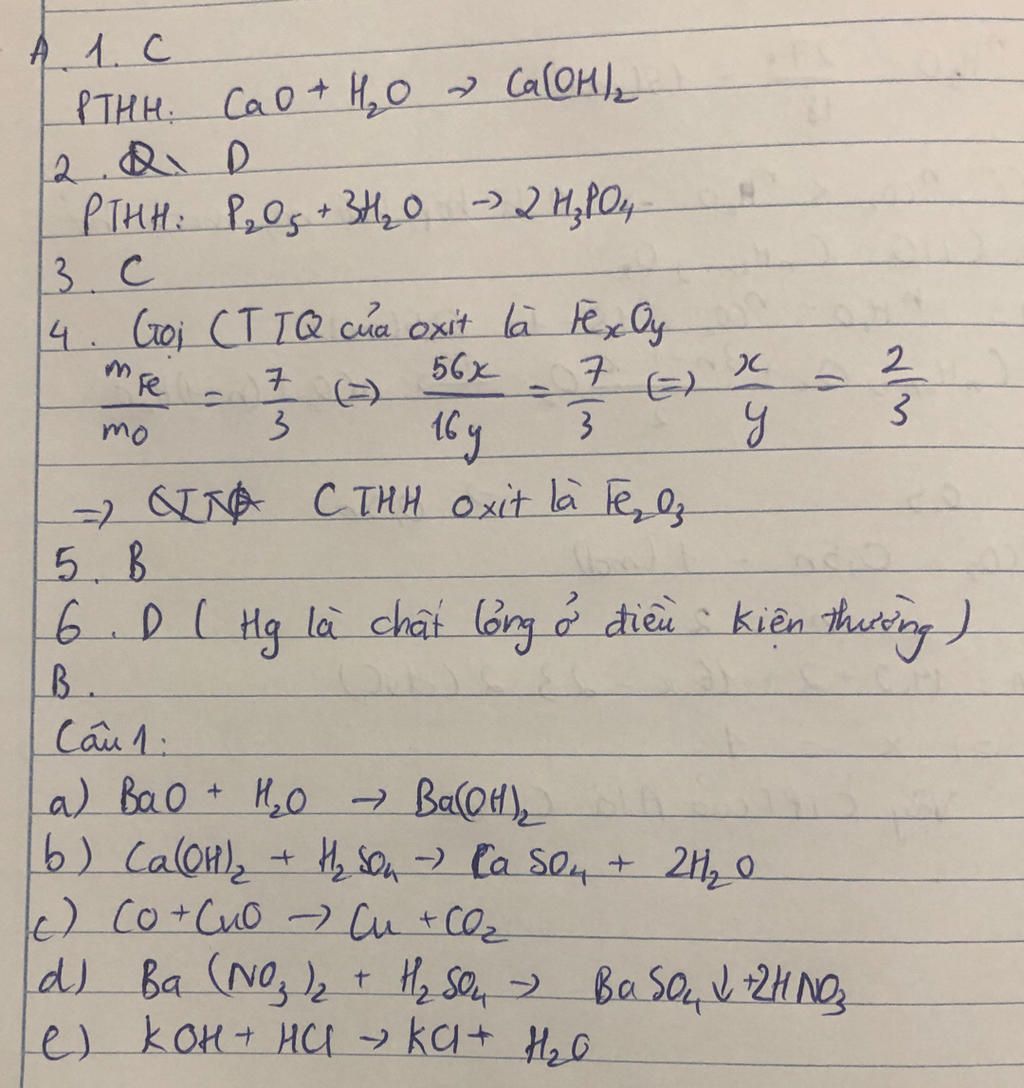 A. 1. C
PTHH: CaO + H₂O → Ca(OH)₂
2. D
PTHH: P₂O₅ + 3H₂O → 2H₃PO₄
3. C
4. Gọi CTTQ của oxit là FexOy
mFe/mO = 7/3 (=) 56x/16y = 7/3 (=) x/y = 2/3
=> CTHH oxit là Fe₂O₃
5. B
6. D ( Hg là chất lỏng ở điều kiện thường )
B.
Câu 1:
a) BaO + H₂O → Ba(OH)₂
b) Ca(OH)₂ + H₂SO₄ → CaSO₄ + 2H₂O
c) CO + CuO → Cu + CO₂
d) Ba(NO₃)₂ + H₂SO₄ → BaSO₄↓ + 2HNO₃
e) KOH + HCl → KCl + H₂O